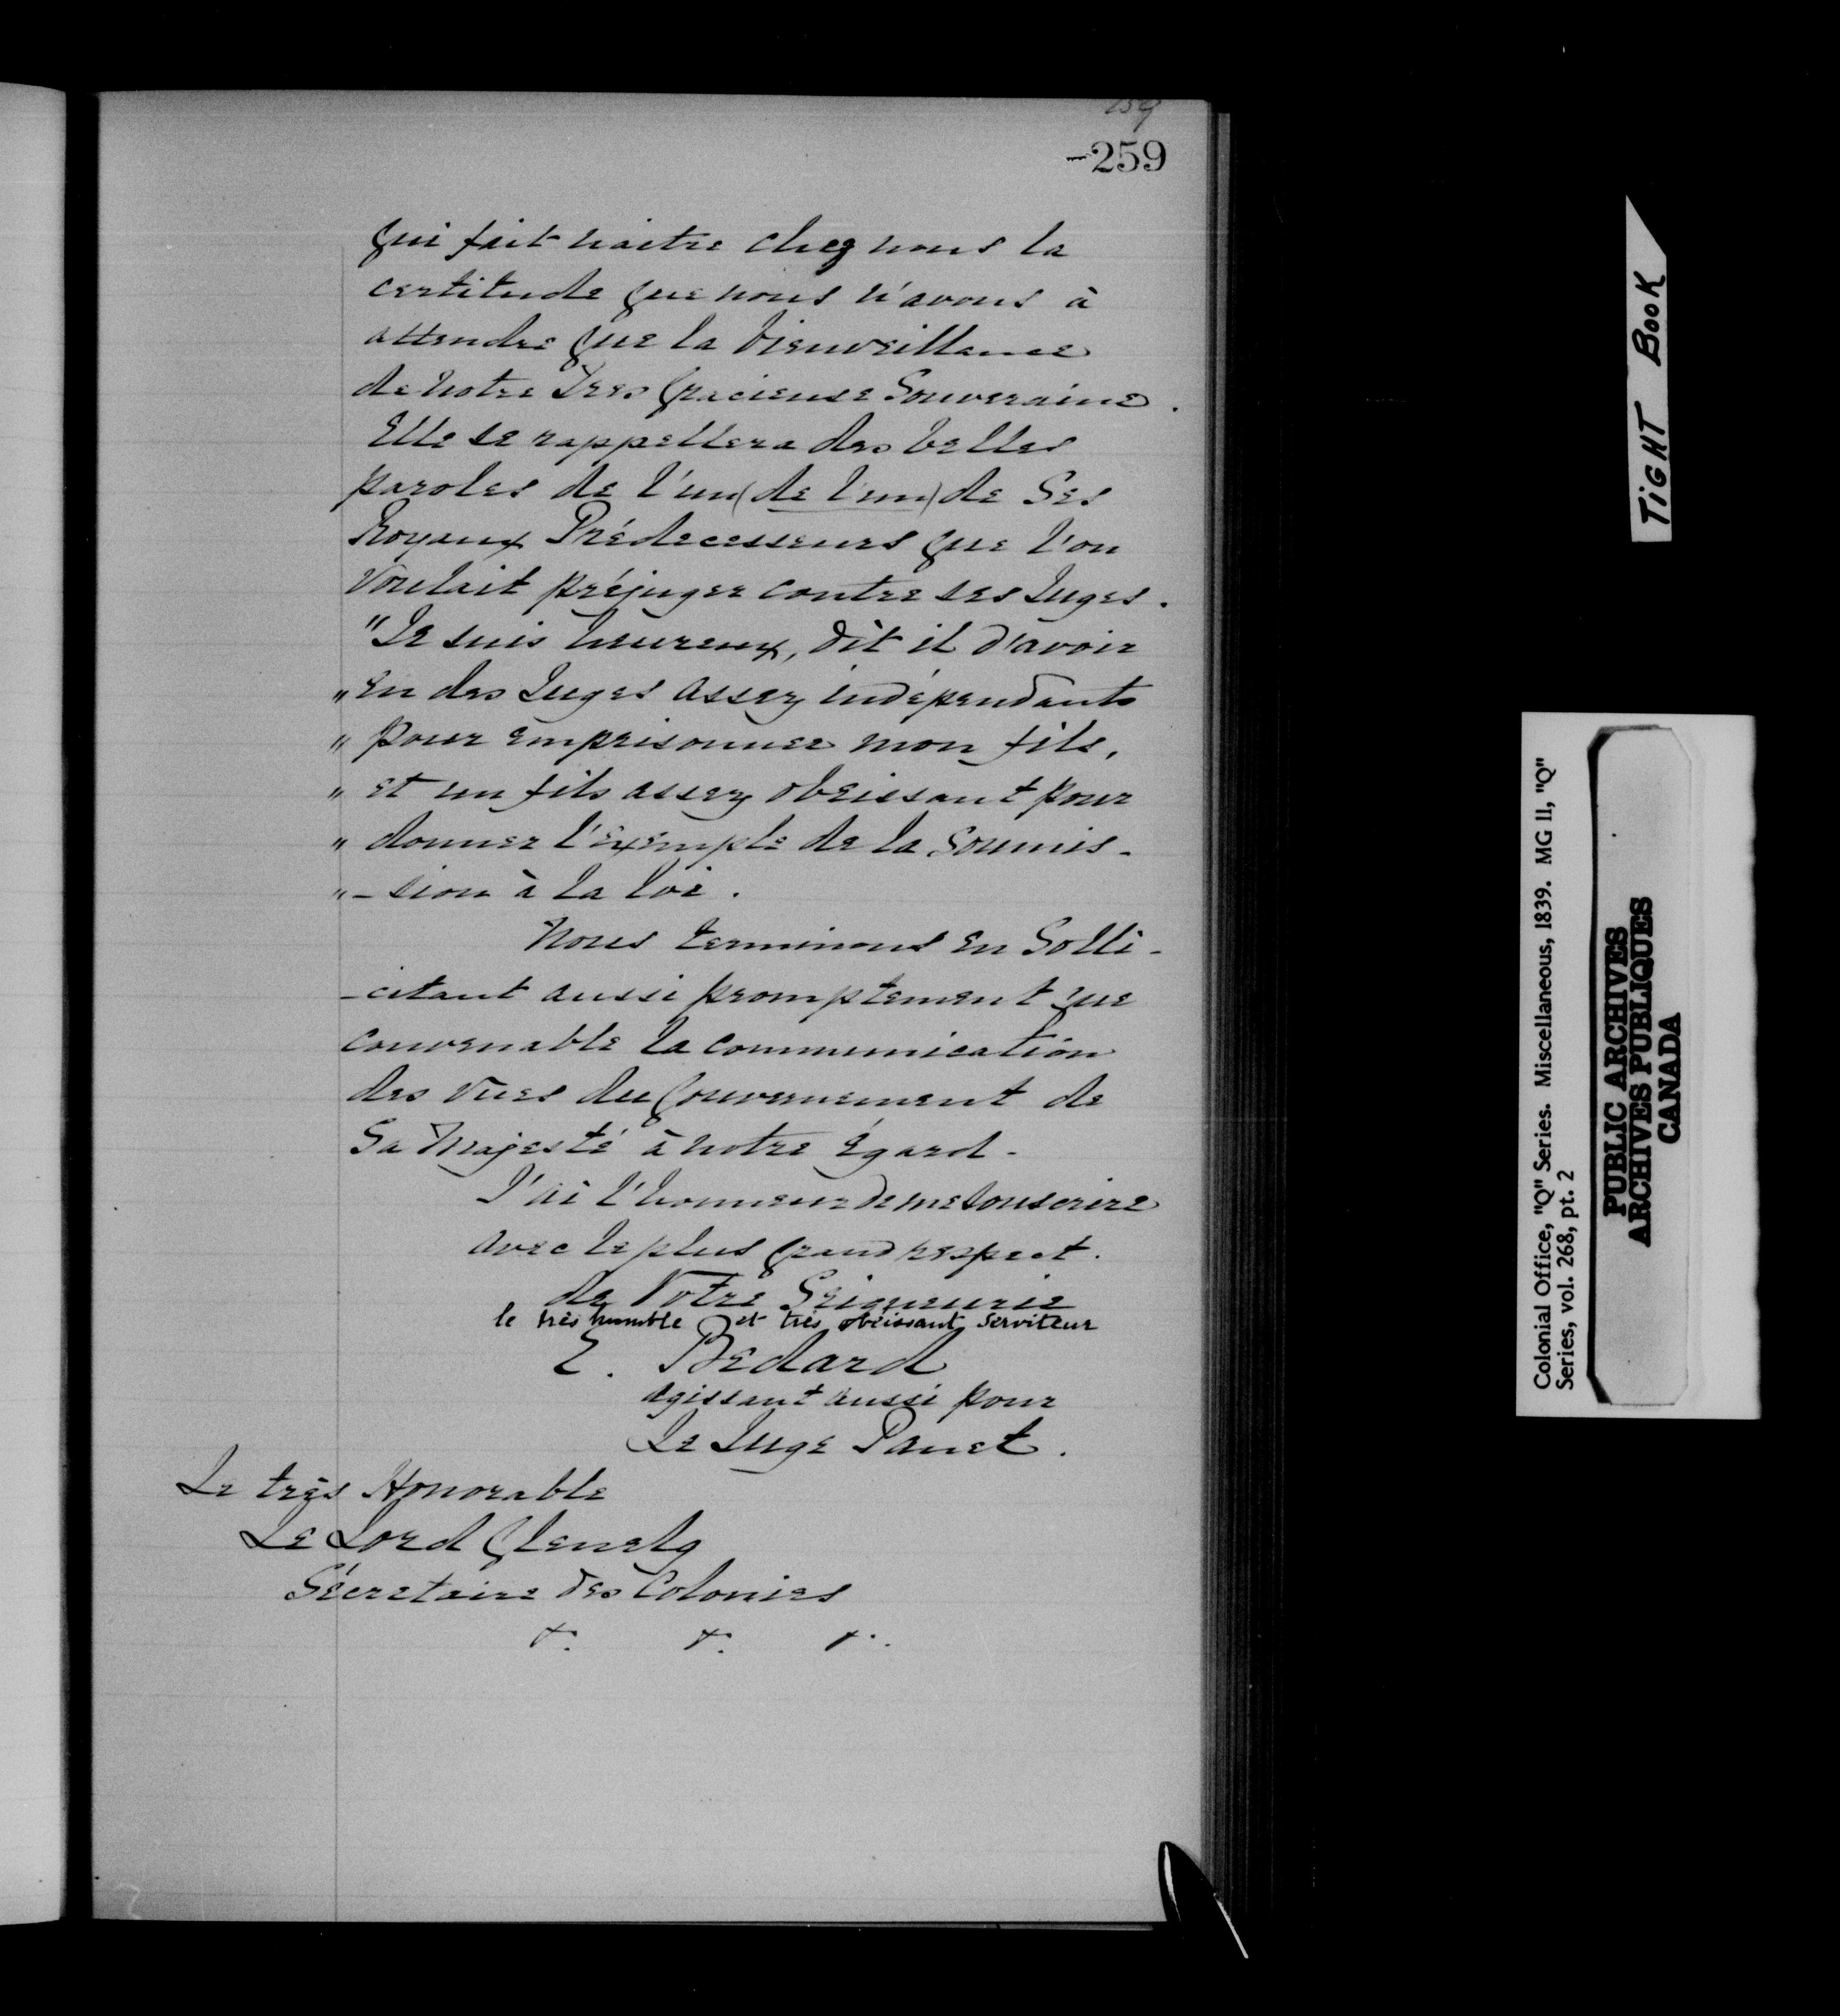 259
-259
qui fait naitre chez nous la
certitude que nous n'avons à
attendre que la bienveillance
de notre Très Gracieuse Souveraine.
Elle se rappellera des belles
paroles de l'un (de l'un) de Ses
Royaux Prédecesseurs que l'on
voulait préjuger contre ses Juges.
"Je suis heureux, dit il d'avoir
" eu des Juges assez indépendants
" pour emprisonner mon fils,
" et un fils assez obeissant pour
" donner l'exemple de la soumis-
" -sion à la loi.
Nous terminons en Solli-
-citant aussi promptement que
convenable la communication
des vues du Gouvernement de
Sa Majesté à notre égard-
J'ai l'honneur de me souscrire
avec le plus grand respect.
de Votre Seigneurie
le très humble et très obéissant serviteur
E. Bedard
agissant aussi pour
Le Juge Panet.
Le très Honorable
Le Lord Glenelg
Sécretaire des Colonies
&. &. &.
TIGHT BOOK
Colonial Office, "Q" Series. Miscellaneous, 1839. MG 11, "Q"
Series, vol. 268, pt. 2
PUBLIC ARCHIVES
ARCHIVES PUBLIQUES
CANADA